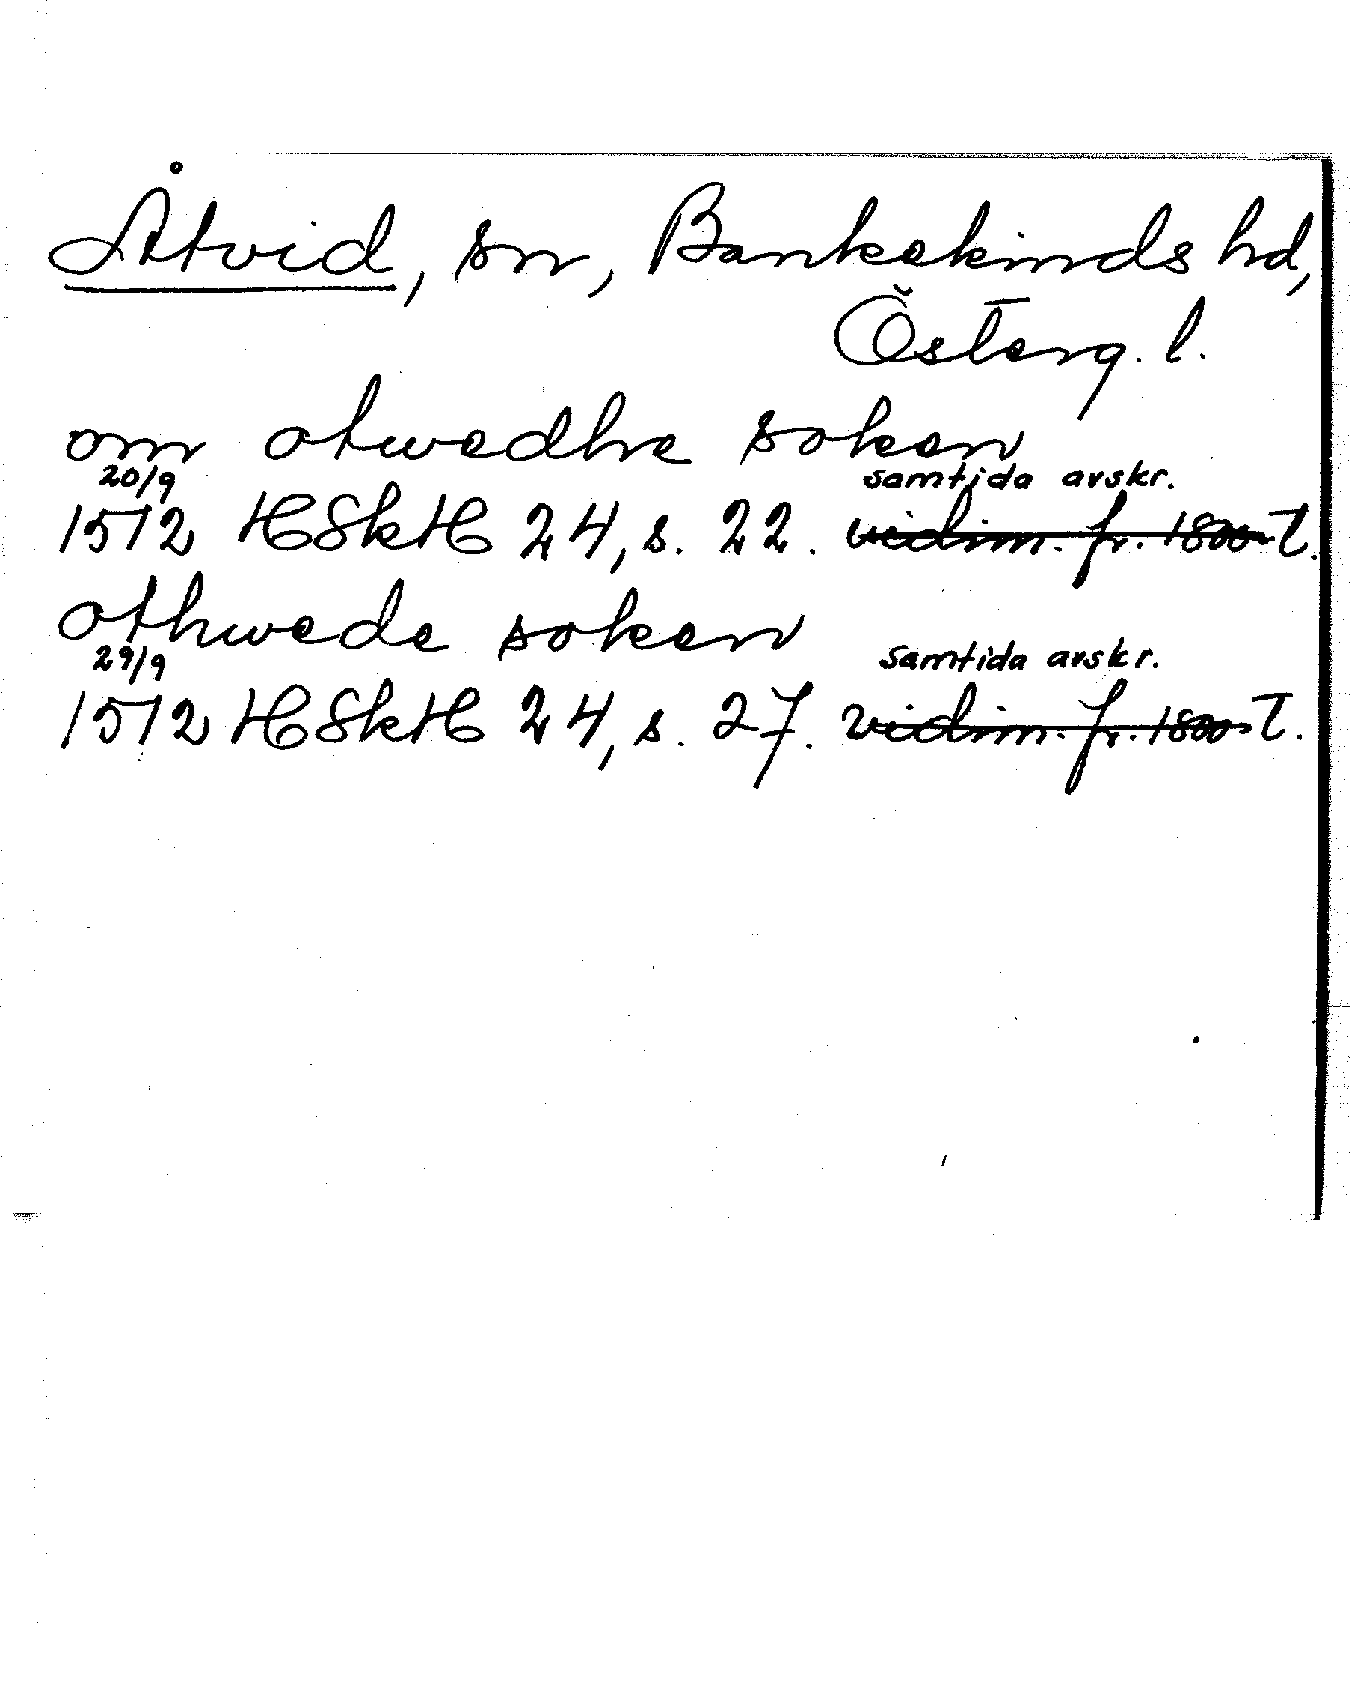 Åtvid, sn, Bankekinds hd,
Österg. l.
om otwedhe soken
20/9 samtida avskr.
1512 HSkH 24, s. 22. vidim. fr. 1800-t.
othwede soken
29/9 samtida avskr.
1512 HSkH 24, s. 27. vidim. fr. 1800-t.